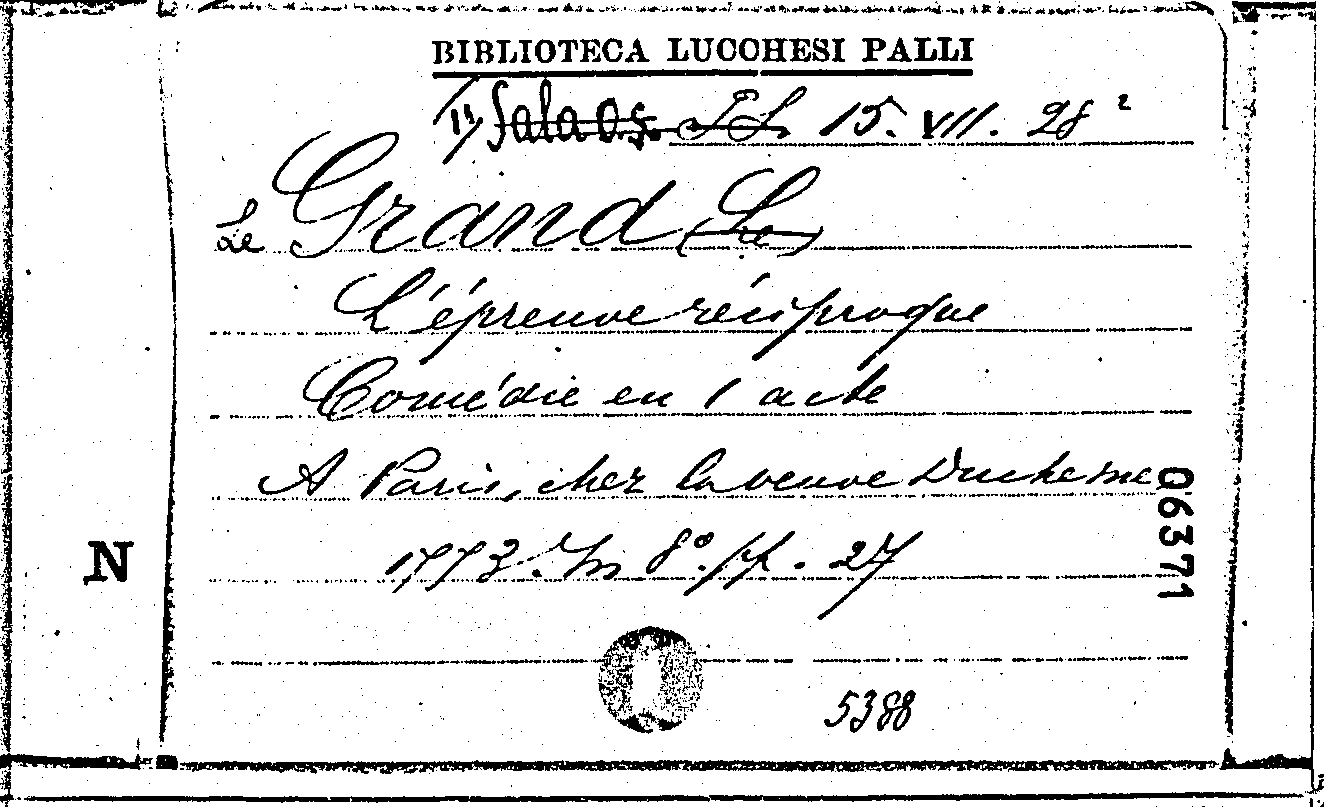 BIBLIOTECA LUCCHESI PALLI
Sala 0.5. 15. VII. 28²
Le Grand (Le)
L'épreuve réciproque
Comédie en 1 acte
A Paris, chez la veuve Duchesne
1773. In 8°. pp. 27
N
06371
5388